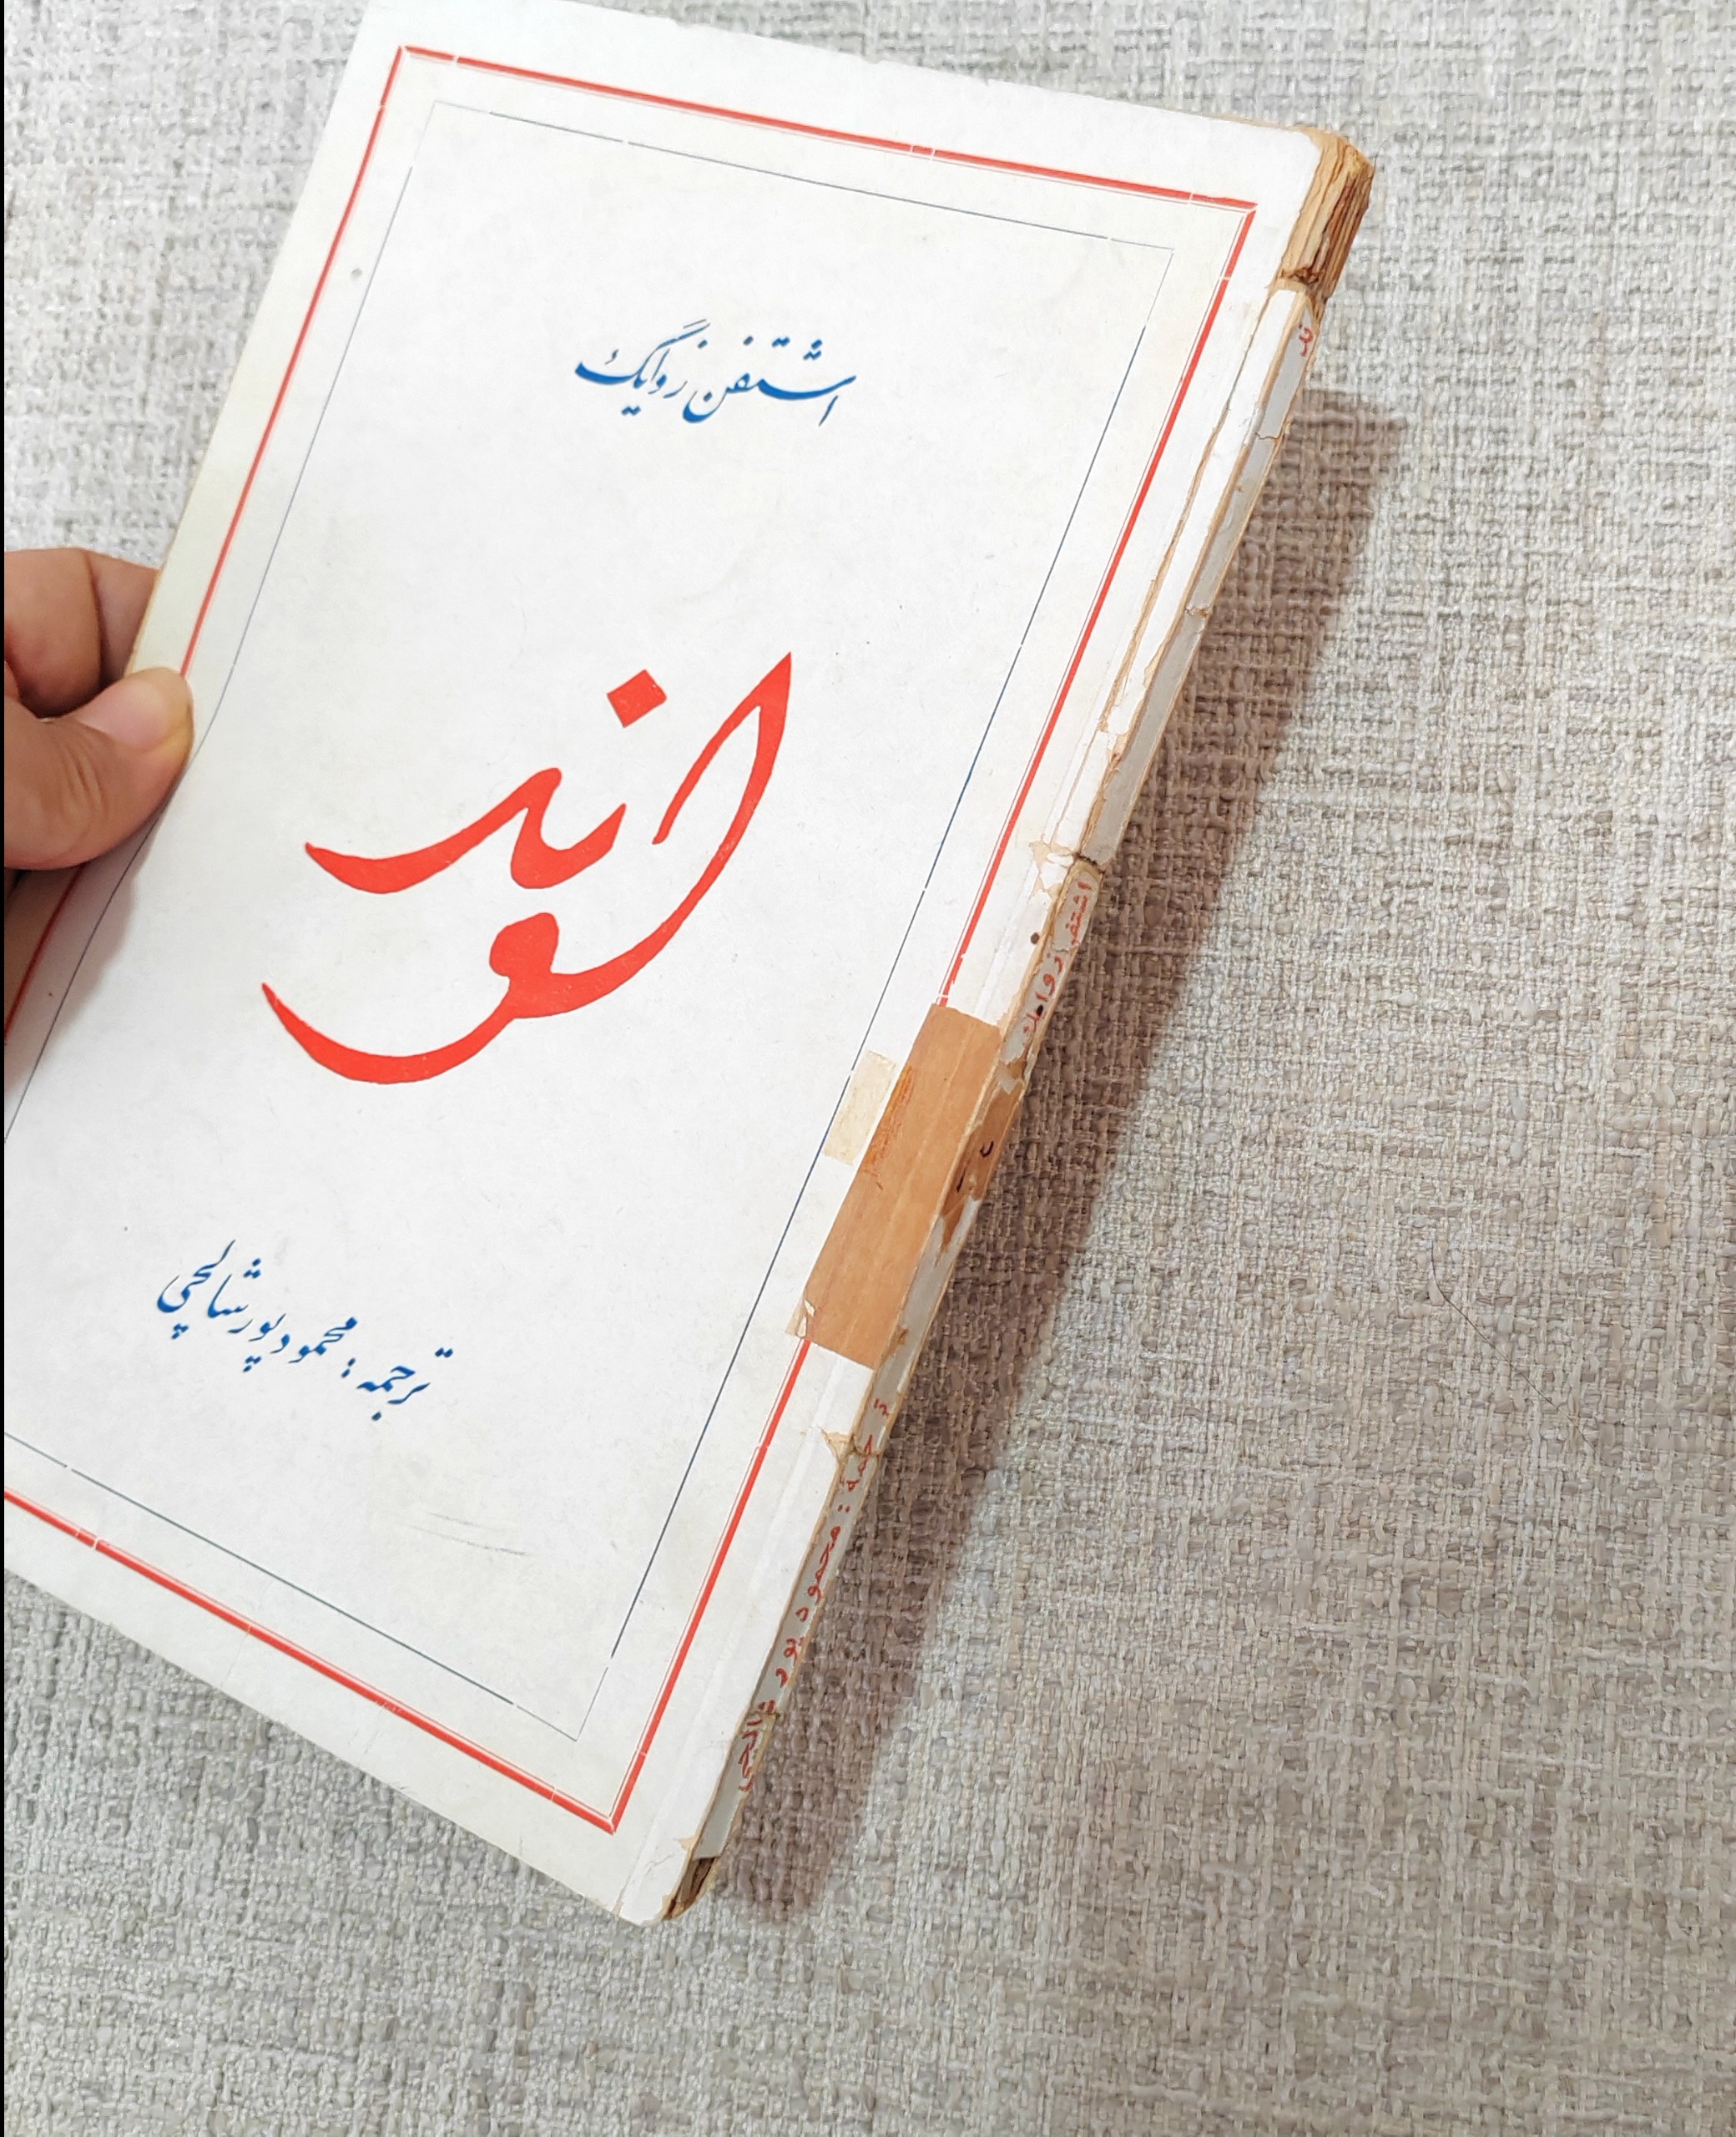 اشتفن زوایگ
ترجمه : محمود پور شالچی
اشتفن زوایک
ترجمه : محمود پور شالچی